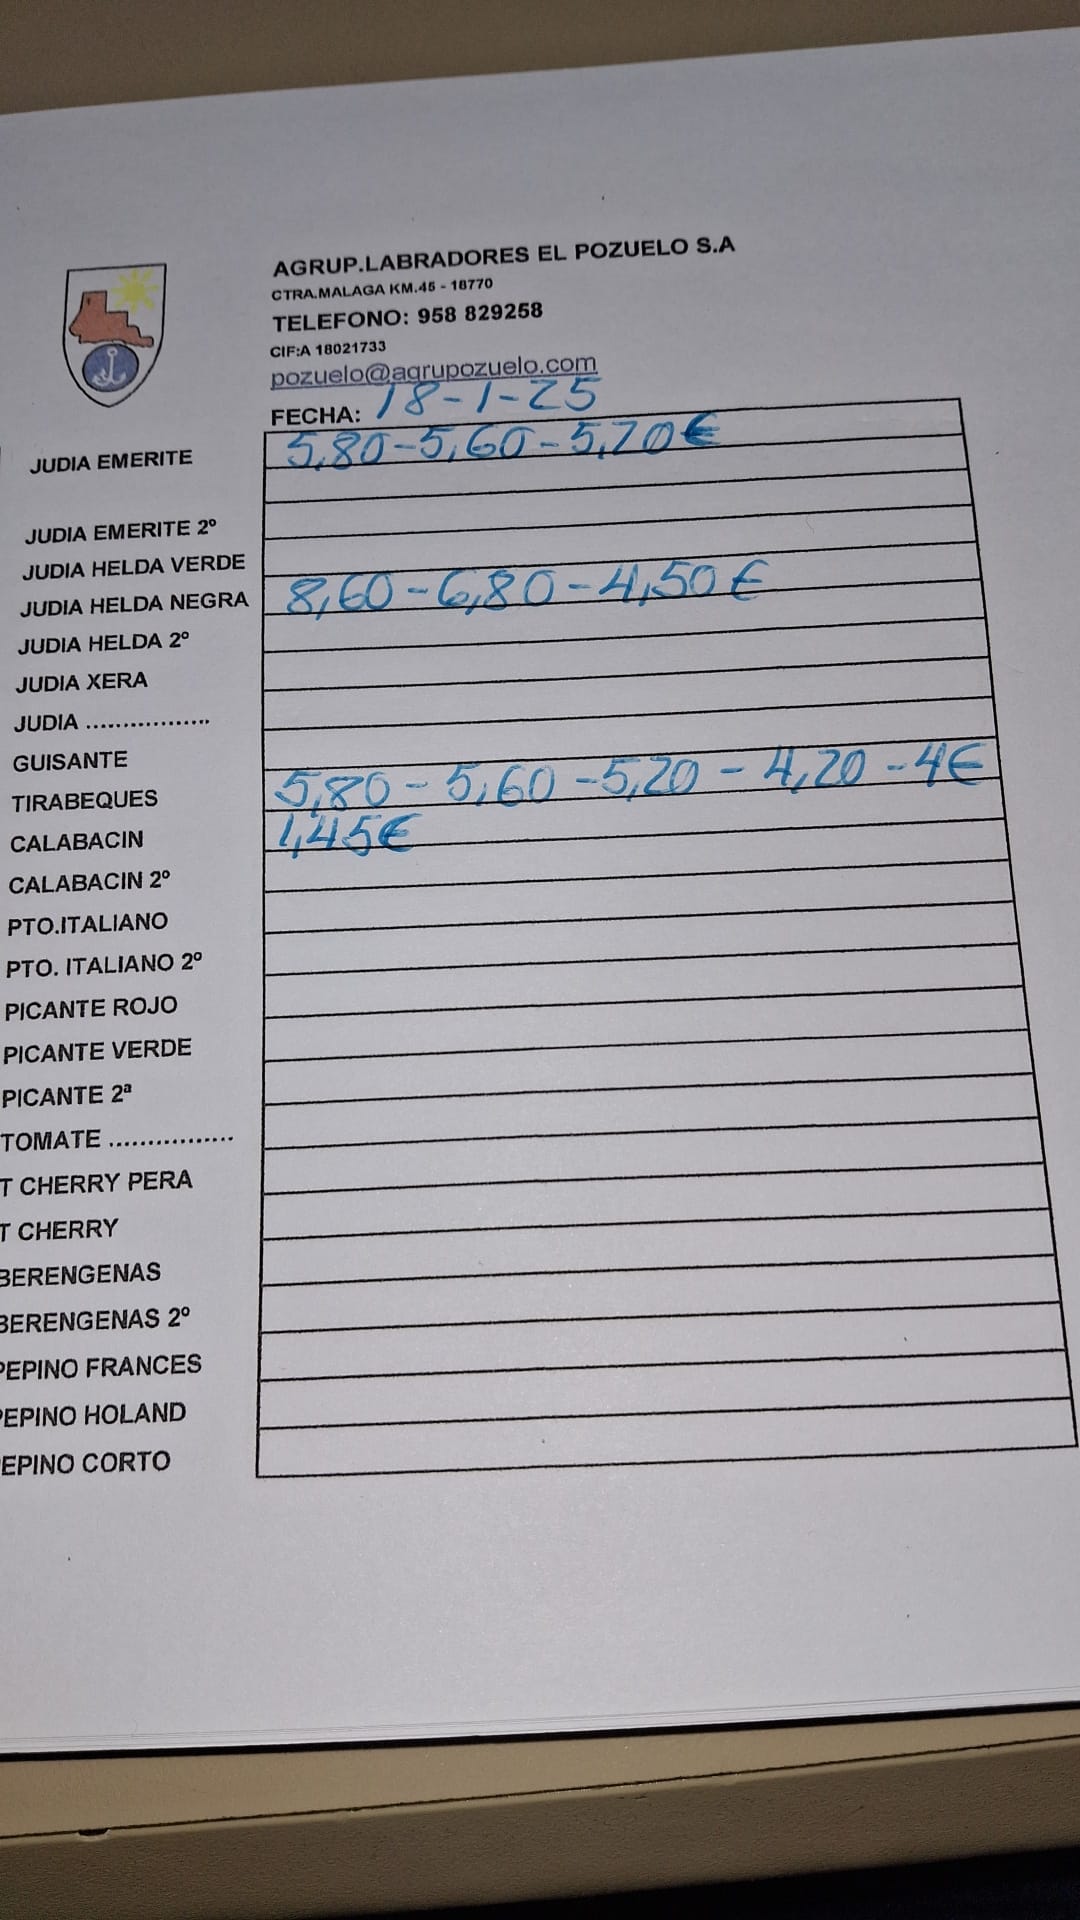 AGRUP.LABRADORES EL POZUELO S.A
CTRA.MALAGA KM.45 - 18770
TELEFONO: 958 829258
CIF:A 18021733
pozuelo@agrupozuelo.com
FECHA: 18-1-25
JUDIA EMERITE 5,80-5,60-5,20€
JUDIA EMERITE 2º
JUDIA HELDA VERDE
JUDIA HELDA NEGRA 8,60-6,80-4,50€
JUDIA HELDA 2º
JUDIA XERA
JUDIA .................
GUISANTE
TIRABEQUES 5,80-5,60-5,20-4,20-4€
CALABACIN 1,45€
CALABACIN 2º
PTO.ITALIANO
PTO. ITALIANO 2º
PICANTE ROJO
PICANTE VERDE
PICANTE 2ª
TOMATE ................
T CHERRY PERA
T CHERRY
BERENGENAS
BERENGENAS 2º
PEPINO FRANCES
PEPINO HOLAND
EPINO CORTO